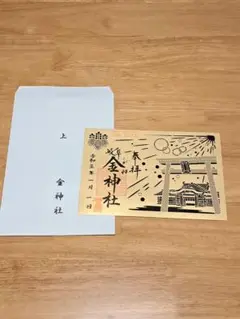 上
金神社
奉拝
岐阜
金神社
令和五年一月一日